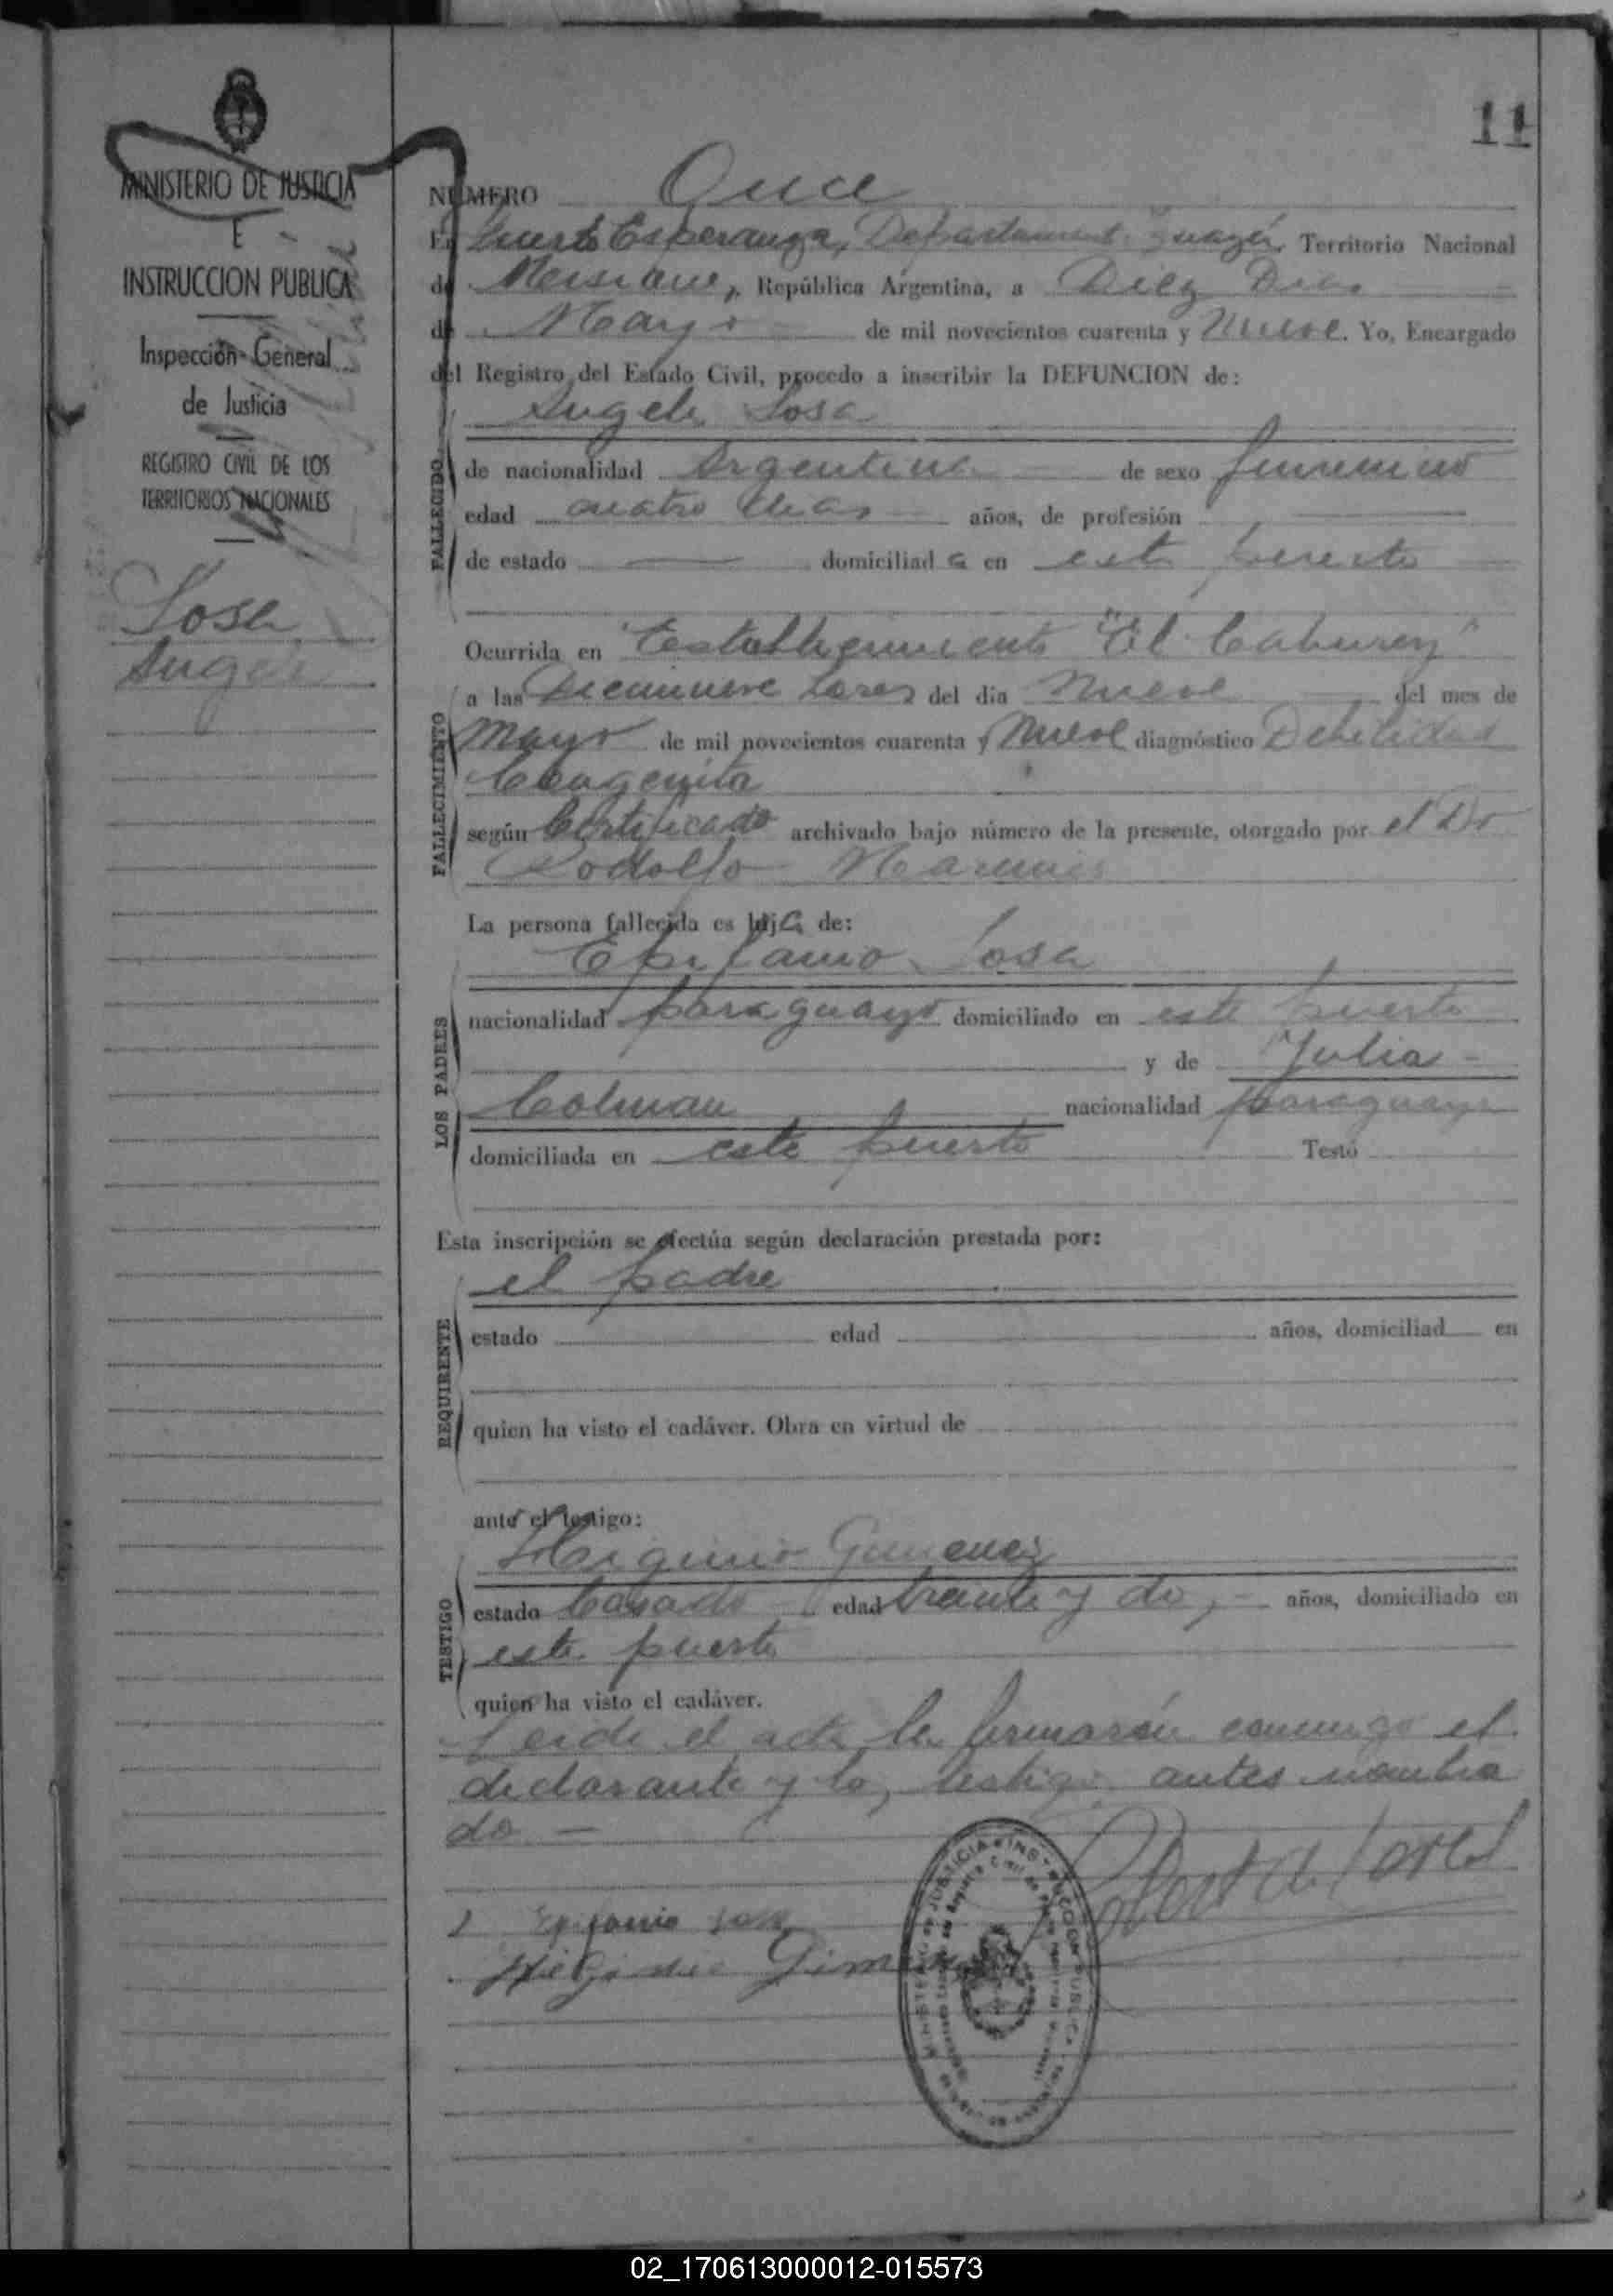 11
MINISTERIO DE JUSTICIA
E
INSTRUCCION PUBLICA
Inspección General
de Justicia
REGISTRO CIVIL DE LOS
TERRITORIOS NACIONALES
Sosa
Angela
NUMERO Once
En Puerto Esperanza, Departamento Iguazú, Territorio Nacional
de Misiones, República Argentina, a Diez Dias
de Mayo de mil novecientos cuarenta y Nueve. Yo, Encargado
del Registro del Estado Civil, procedo a inscribir la DEFUNCION de:
Angela Sosa
FALLECIDO
de nacionalidad Argentina de sexo femenino
edad cuatro dias años, de profesión
de estado domiciliada en este puerto
Ocurrida en Establecimiento "El Caburey"
FALLECIMIENTO
a las Diecinueve horas del día Nueve del mes de
Mayo de mil novecientos cuarenta y Nueve diagnóstico Debilidad
Congenita
según Certificado archivado bajo número de la presente, otorgado por el Dr
Rodolfo
La persona fallecida es hija de:
Epifanio Sosa
LOS PADRES
nacionalidad paraguayo domiciliado en este puerto
y de Julia
Colman nacionalidad paraguaya
domiciliada en este puerto Testó
Esta inscripción se efectúa según declaración prestada por:
el padre
REQUIRENTE
estado edad años, domiciliad en
quien ha visto el cadáver. Obra en virtud de
ante el testigo:
Higinio Gimenez
TESTIGO
estado Casado edad treinta y dos años, domiciliado en
este puerto
quien ha visto el cadáver.
Leida el acta la firmarón conmigo el
declarante y los testigos antes nombra
do —
Epifanio Sosa
Higinio Gimenez
MINISTERIO DE JUSTICIA E INSTRUCCION PUBLICA
02_170613000012-015573